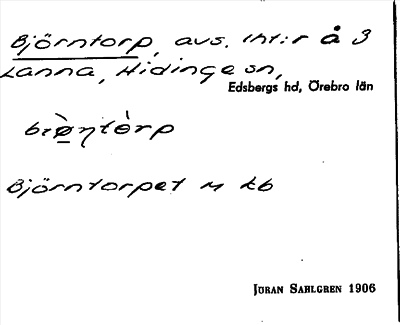 Björntorp, avs. Int:r å 3
Lanna, Hidinge sn,
Edsbergs hd, Örebro län
Björntorpet M Kb
JÖRAN SAHLGREN 1906